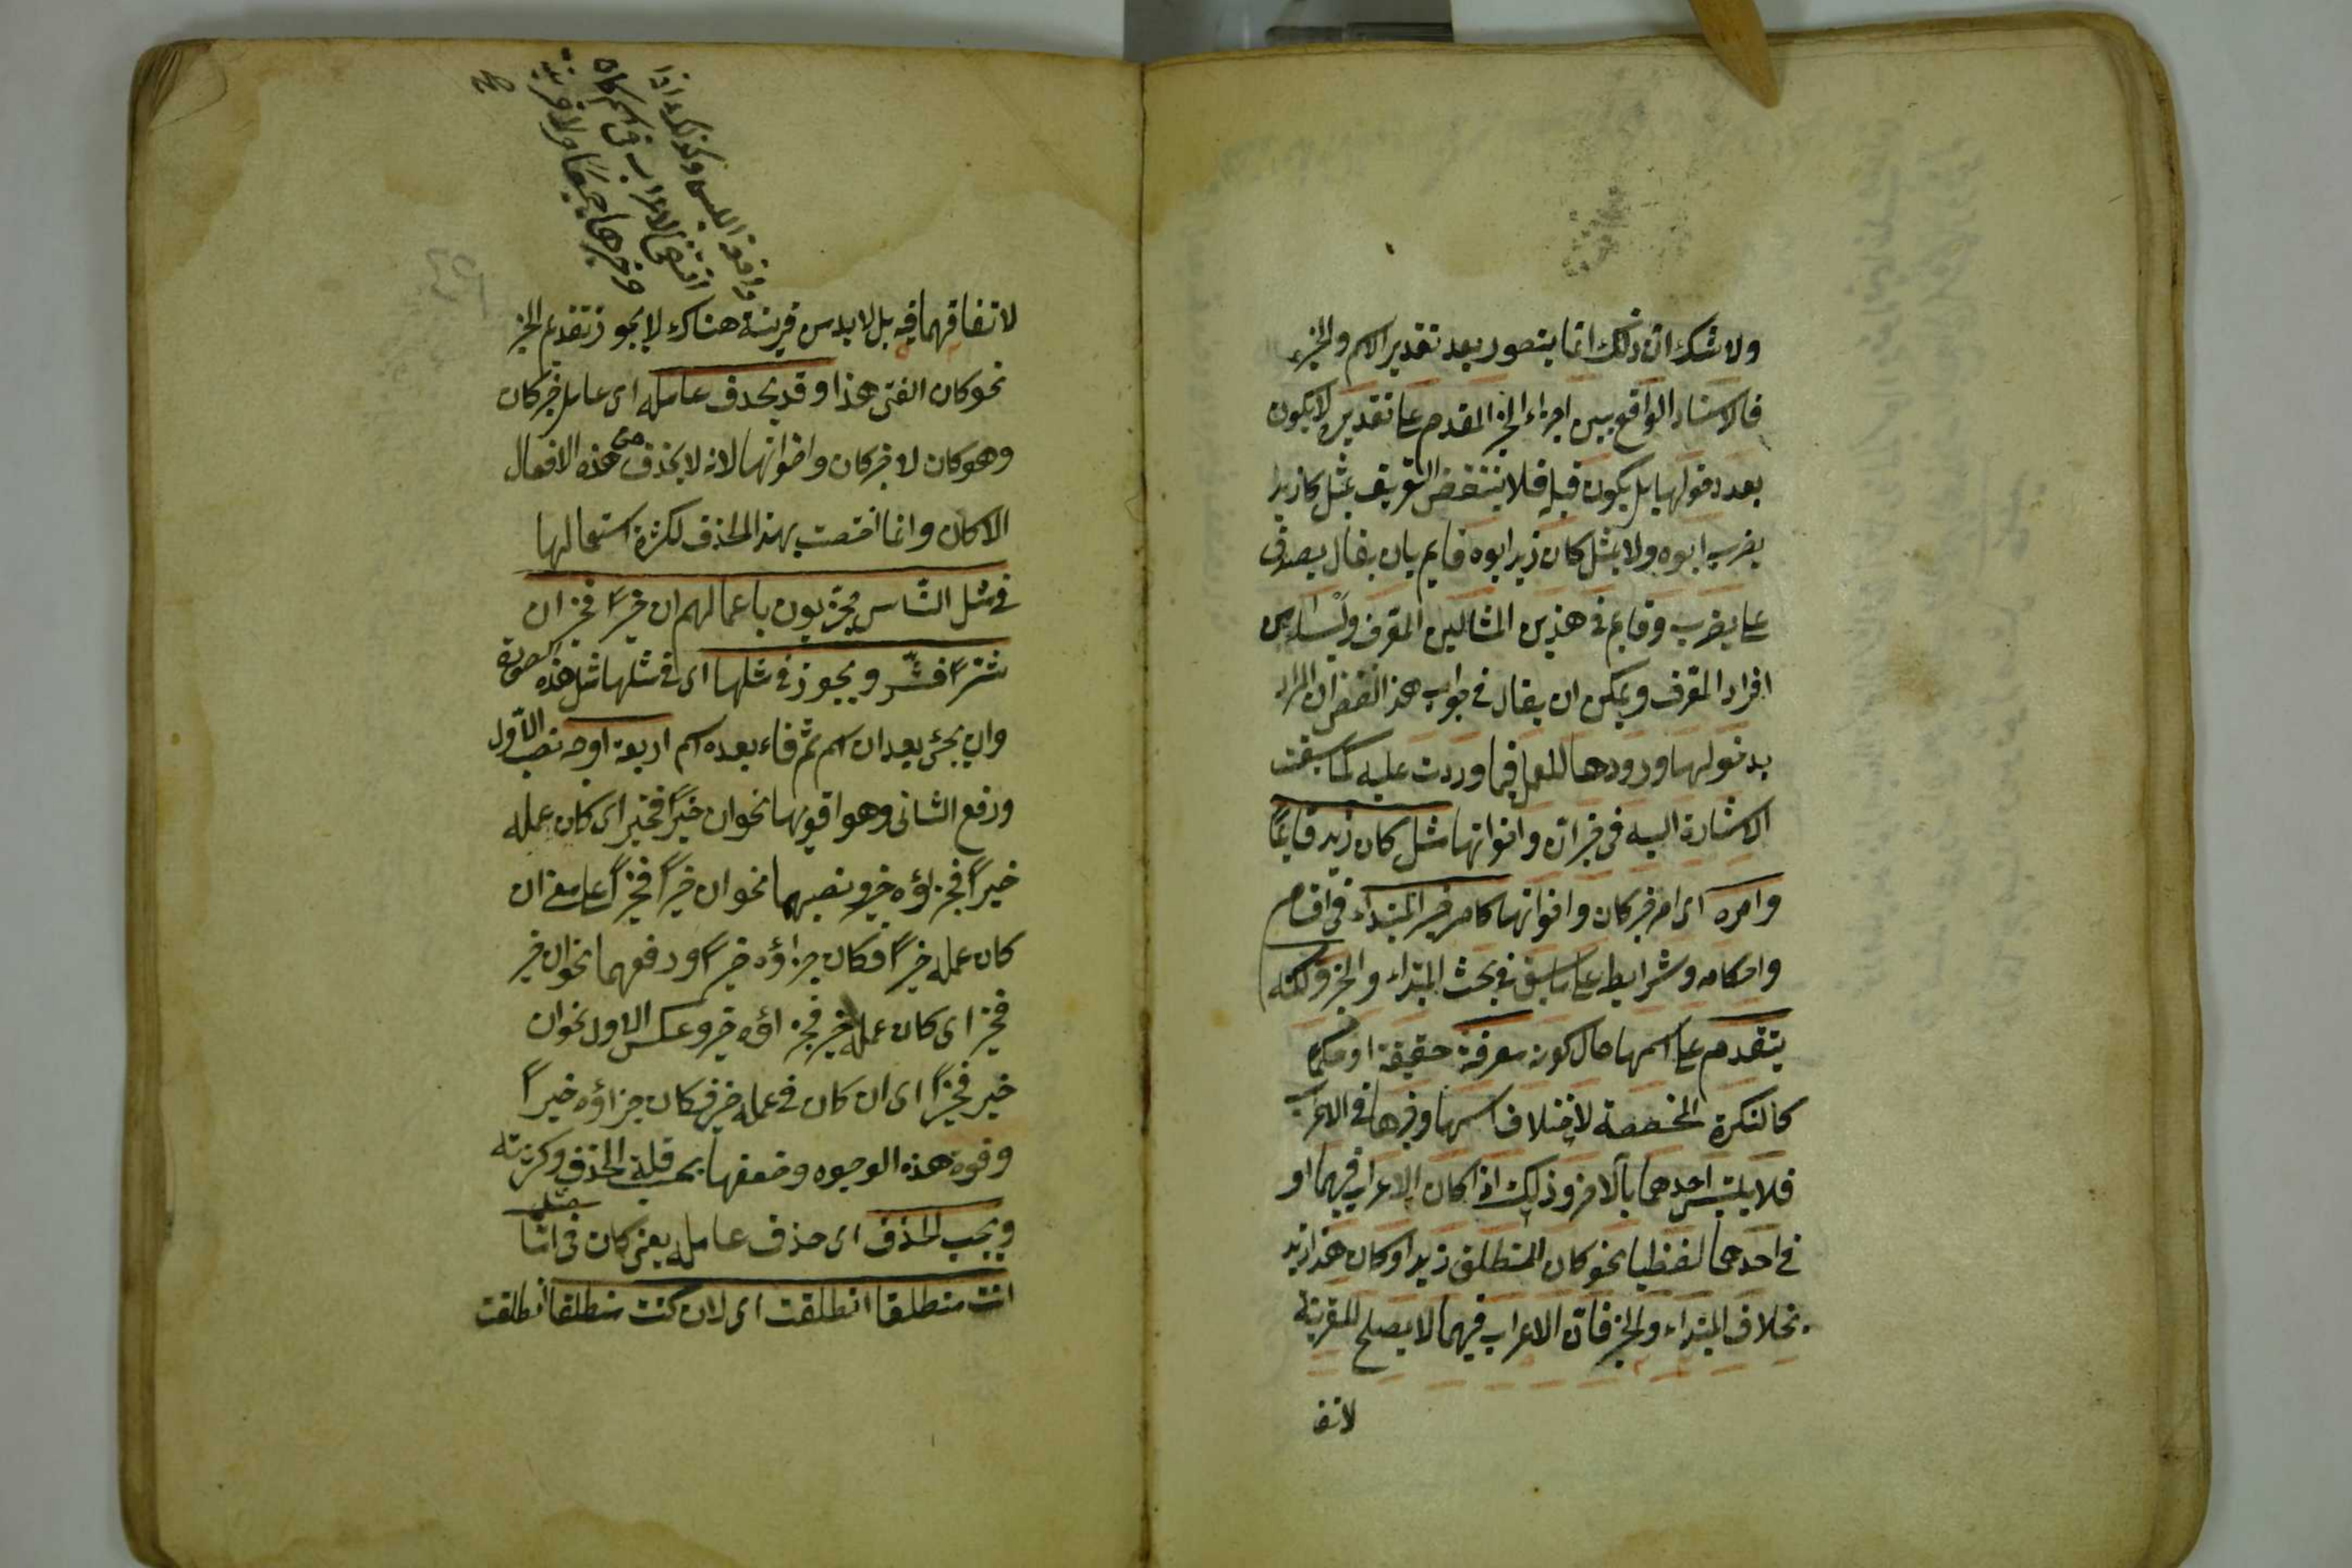 ولا شك ان ذلك انما يتصور بعد تقدير الاسم والخبر
فالاسناد الواقع بين اجزاء الخبر المقدم على تقديره لا يكون
بعد دخولها بل يكون قبله فلا ينتقض التعريف بمثل كان زيد
يضرب ابوه ولا بمثل كان زيد ابوه قايم بان يقال يصدق
على يضرب وقايم في هذين المثالين المعرف وليسا من
افراد المعرف ويمكن ان يقال في جواب هذا النقض ان المراد
بدخولها ورودها للعمل فيما وردت عليه كما سبقت
الاشارة اليه في خبر ان واخواتها مثل كان زيد قايمًا
وامره اى امر خبر كان واخواتها كامر خبر المبتداء في اقسامه
واحكامه وشرايطه على ما سبق في بحث المبتداء والخبر ولكنه
يتقدم على اسمها حال كونه معرفة حقيقة او حكمًا
كالنكرة المخصصة لاختلاف اسمها وخبرها في الاعراب
فلا يلتبس احدهما بالاخر وذلك اذا كان الاعراب فيهما او
في احدهما لفظيا نحو كان المنطلق زيد او كان هذا زيد
بخلاف المبتداء والخبر فان الاعراب فيهما لا يصلح للقرينة
لاتفا
وخبرها جميعا ولا قرينة
لاتفاقهما فيه بل لا بد من قرينة هناك لا يجوز تقديم الخبر
نحو كان الفتى هذا وقد يحذف عامله اى عامل خبر كان
وهو كان لا خبر كان واخواتها لانه لا يحذف من هذه الافعال
الا كان وانما اختصت بهذا الحذف لكثرة استعمالها
في مثل الناس مجزيون باعمالهم ان خيرًا فخير ان
شرًا فشرّ ويجوز في مثلها اى في مثلها مثل هذه الصورة
وان يجئ بعد ان اسم ثم فاء بعده اسم اربعة اوجه نصب الاول
ورفع الثانى وهو اقويها نحو ان خيرًا فخير اى كان عمله
خيرًا فجزاؤه خير ونصبهما نحو ان خيرًا فخيرًا على معنى ان
كان عمله خيرًا فكان جزاؤه خيرًا ورفعهما نحو ان خير
فخير اى كان عمله خير فجزاؤه خير وعكس الاول نحو ان
خير فخيرًا اى ان كان في عمله خير فكان جزاؤه خيرًا
وقوة هذه الوجوه وضعفها بحسب قلة الحذف وكثرته
ويجب الحذف اى حذف عامله يعنى كان في مثل امّا
انت منطلقا انطلقت اى لان كنت منطلقا انطلقت